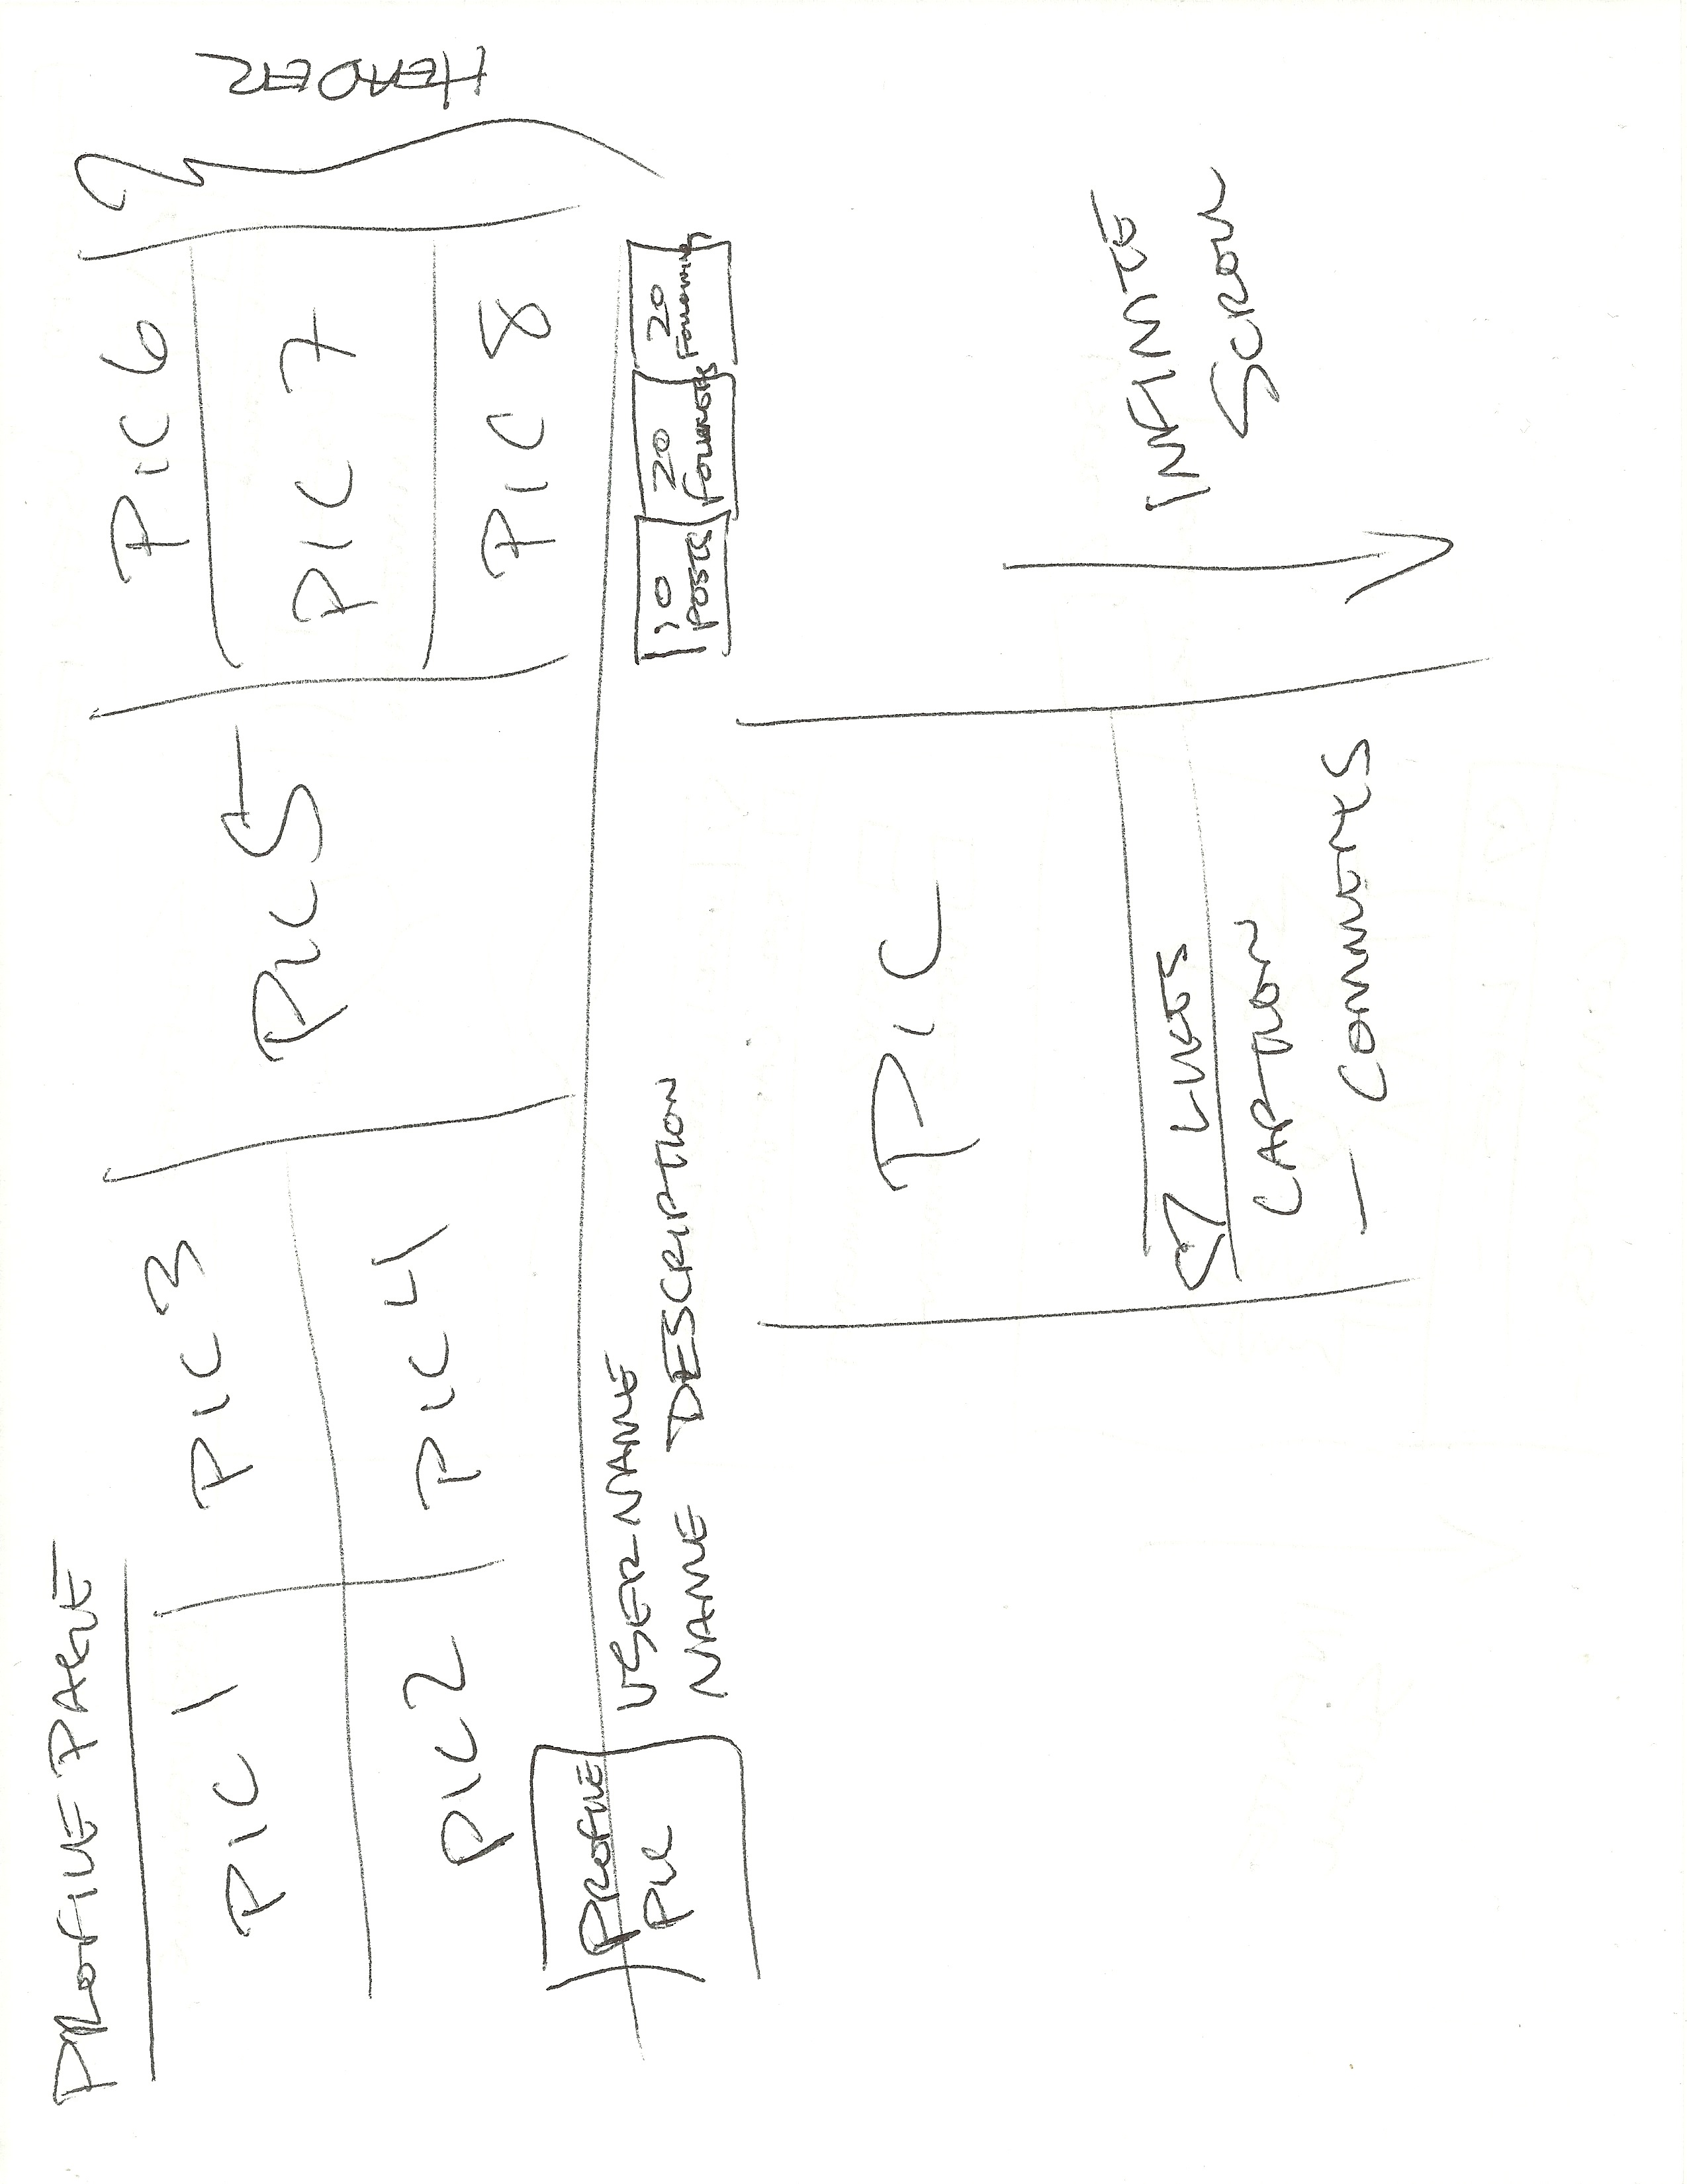 PROFILE PAGE
PIC 1
PIC 3
PIC 5
PIC 6
HEADER
PIC 2
PIC 4
PIC 7
PIC 8
PROFILE
PIC
USER-NAME
NAME DESCRIPTION
10
POSTS
20
FOLLOWERS
20
FOLLOWING
PIC
LIKES
CAPTION
— COMMENTS
INFINITE
SCROLL